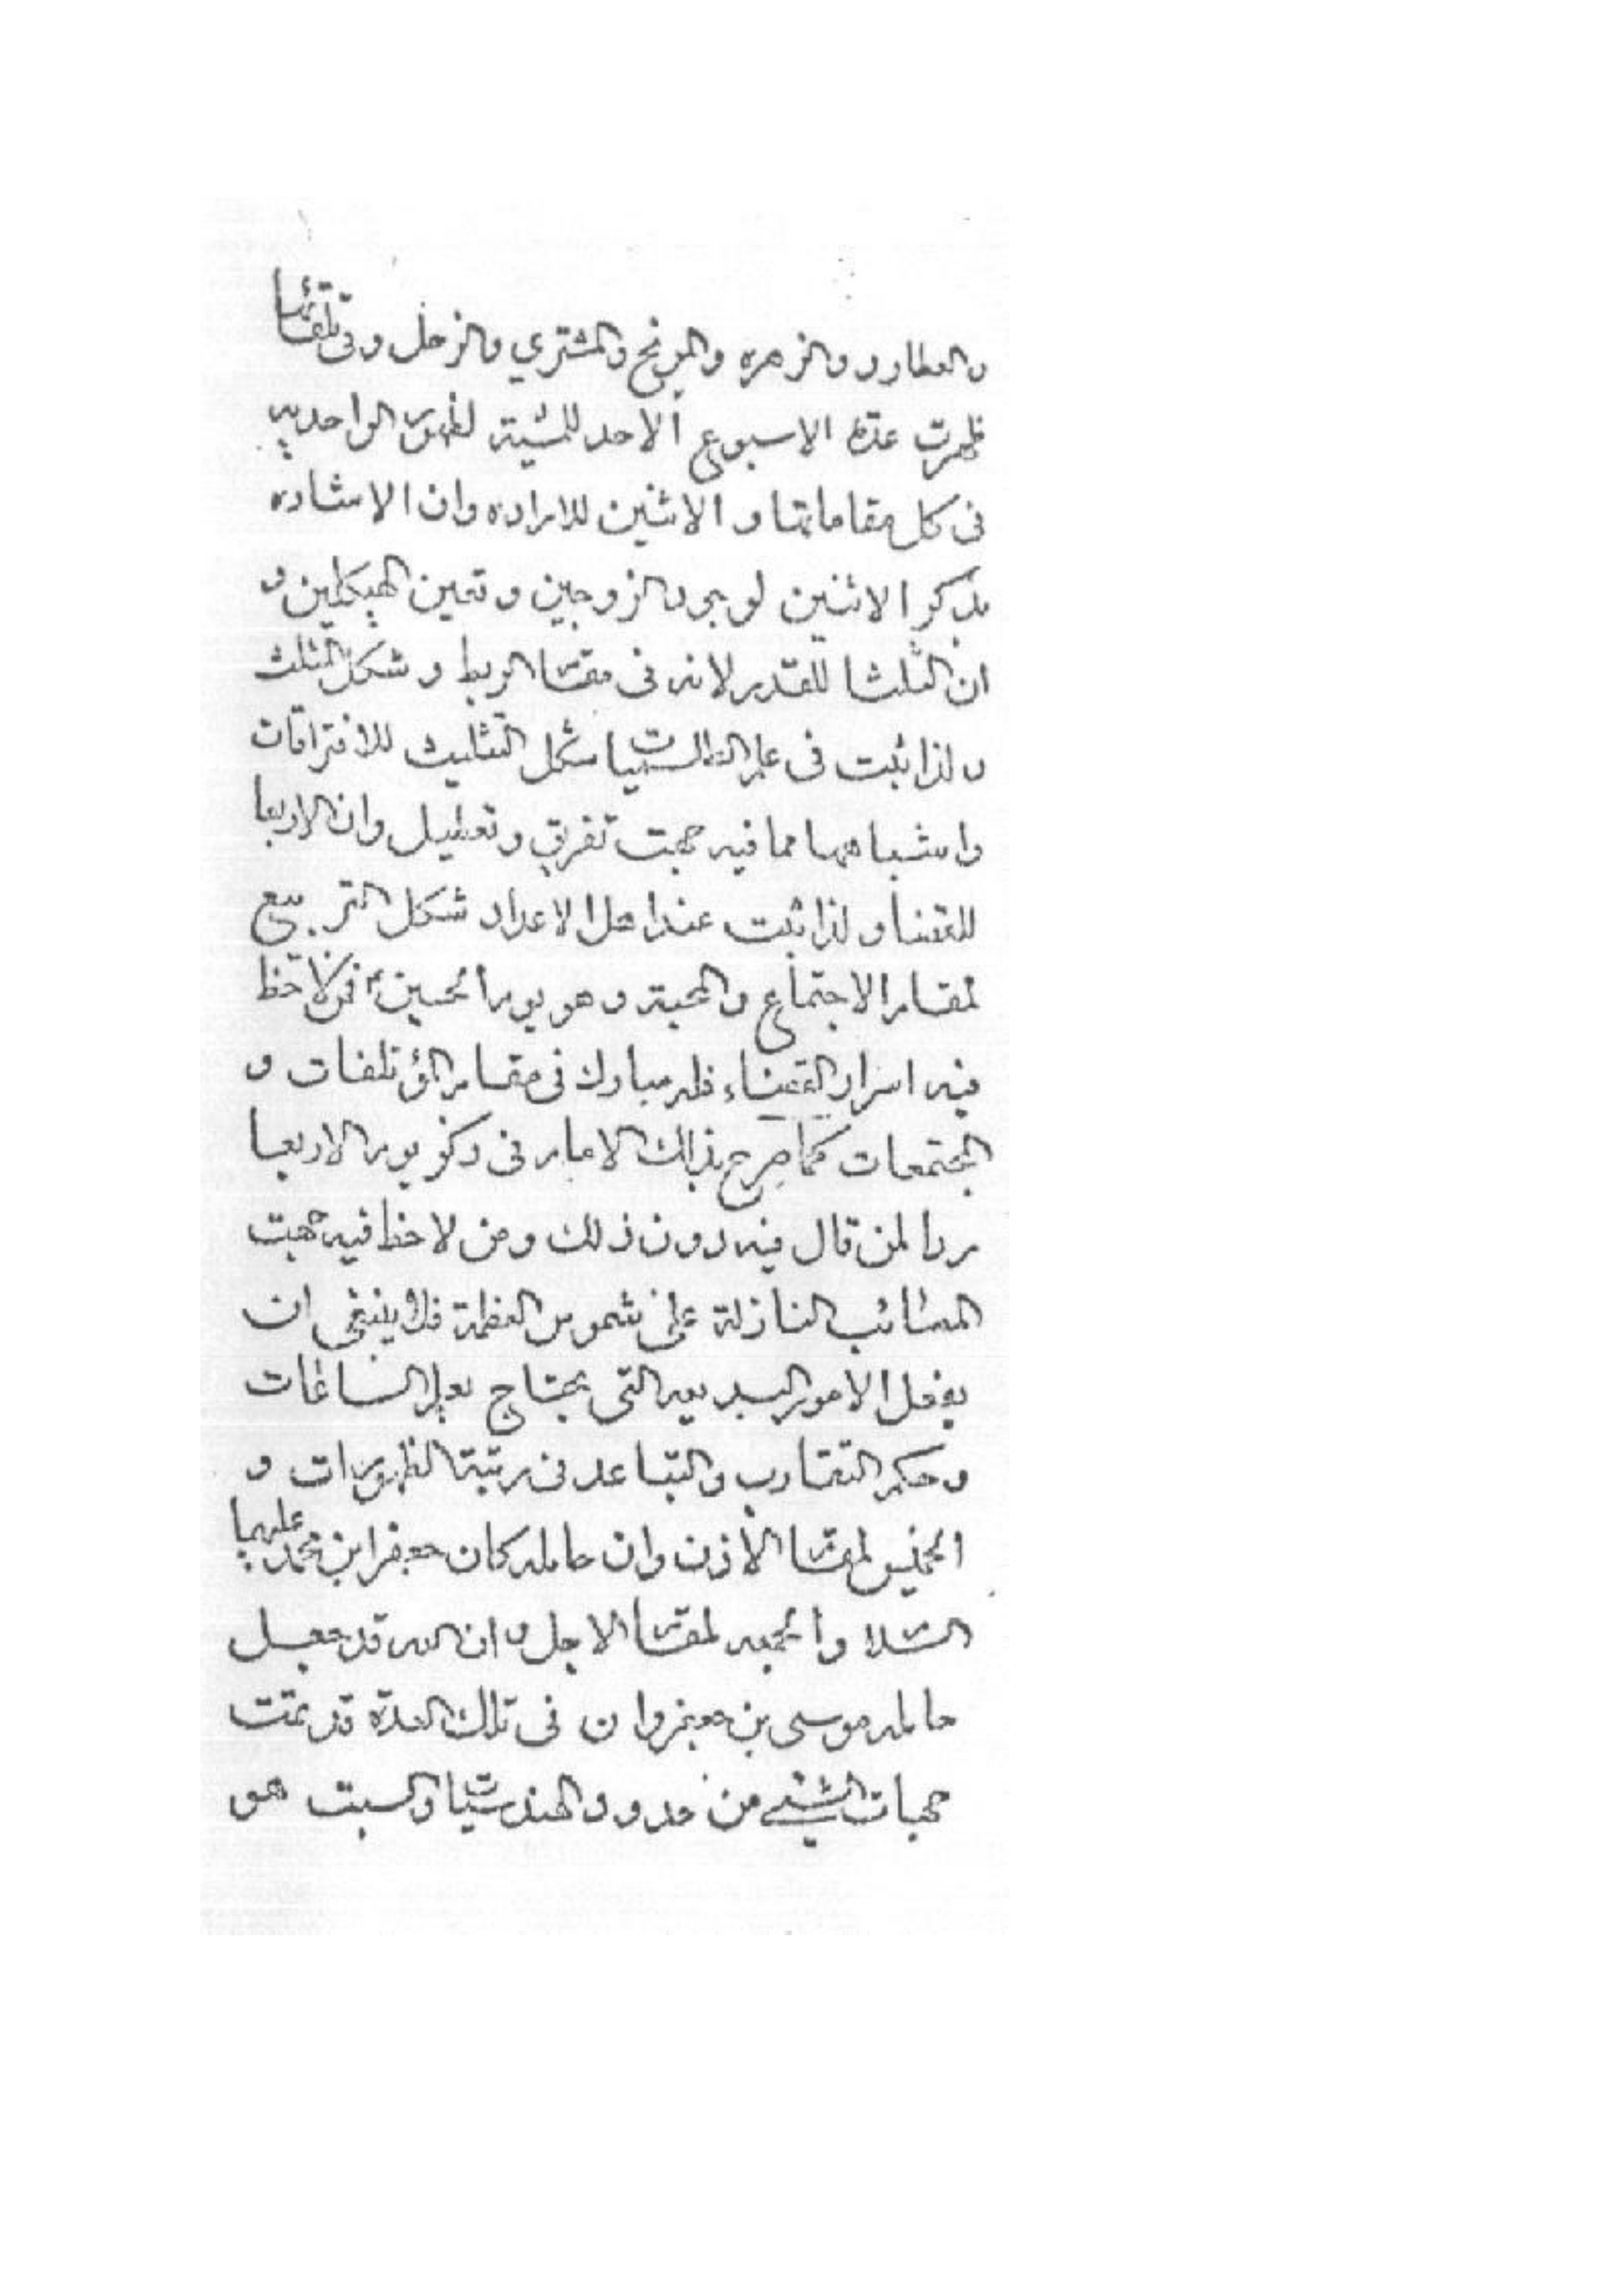 والعطارد والزهره والمريخ والمشتري والزحل وفي تلقائها
ظهرت عدة الاسبوع الاحد للمشية لظهور الواحديه
في كل مقاماتها و الاثنين للاراده وان الاشاره
بذكر الاثنين لوجود الزوجين و تعين الهيكلين و
ان الثلثا للقدر لانه في مقام الربط و شكل المثلث
و لذا ثبت في علم الطلسميات شكل التثليث للافتراقات
واشباهها مما فيه جهت تفريق و تعطيل وان الاربعا
للقضا و لذا ثبت عند اهل الاعداد شكل التربيع
لمقام الاجتماع والمحبة و هو يوم الحسين ع فمن لاحظ
فيه اسرار القضاء فله مبارك في مقام المؤتلفات و
المجتمعات كما صرح بذلك الامام في ذكر يوم الاربعا
ردا لمن قال فيه دون ذلك ومن لاحظ فيه جهت
المصائب النازلة على شموس العظمة فلا ينبغي ان
يفعل الامور البديعه التي يحتاج بعلم الساعات
و حكم التقارب والتباعد في رتبة الظهورات و
الخميس لمقام الاذن وان حامله كان جعفر ابن محمد عليهما
السلام والجمعه لمقام الاجل و ان الله قد جعل
حامله موسى بن جعفر وان في تلك العدة قد تمت
جهات الشيء من حدود الهندسيات والسبت هو